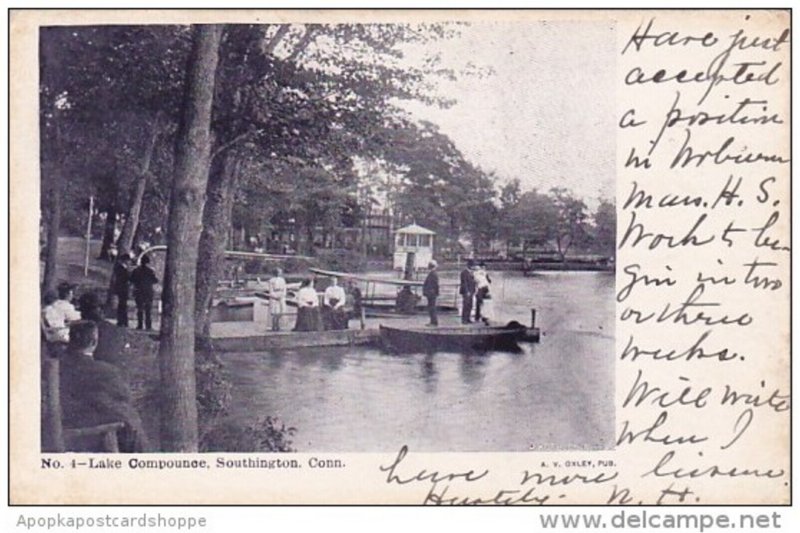 Have just
accepted
a position
in Woburn
Mass. H. S.
Work to be-
gin in two
or three
weeks.
Will write
when I
have more leisure.
Hastily - N. H.
No. 4-Lake Compounce, Southington, Conn.
A. V. OXLEY, PUB.
Apopkapostcardshoppe
© www.delcampe.net